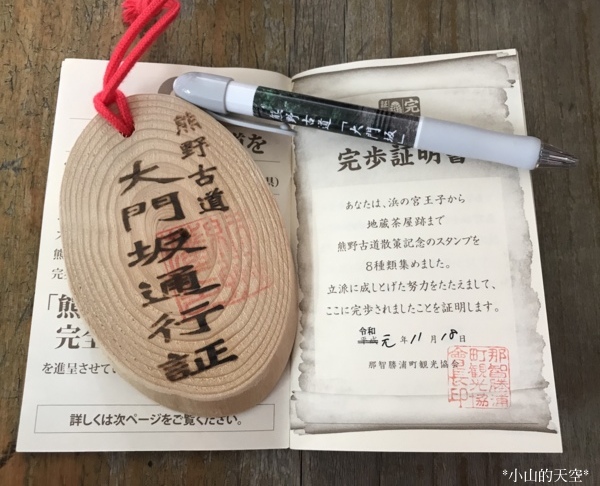 熊野古道
大門坂通行証
を
「熊
完全
を進呈させてい
詳しくは次ページをご覧ください。
熊野古道「大門坂」
完
完歩証明書
あなたは、浜の宮王子から
地蔵茶屋跡まで
熊野古道散策記念のスタンプを
8種類集めました。
立派に成しとげた努力をたたえまして、
ここに完歩されましたことを証明します。
令和
平成元年11月18日
那智勝浦町観光協会
那智勝浦
町観光協
会長印
*小山的天空*